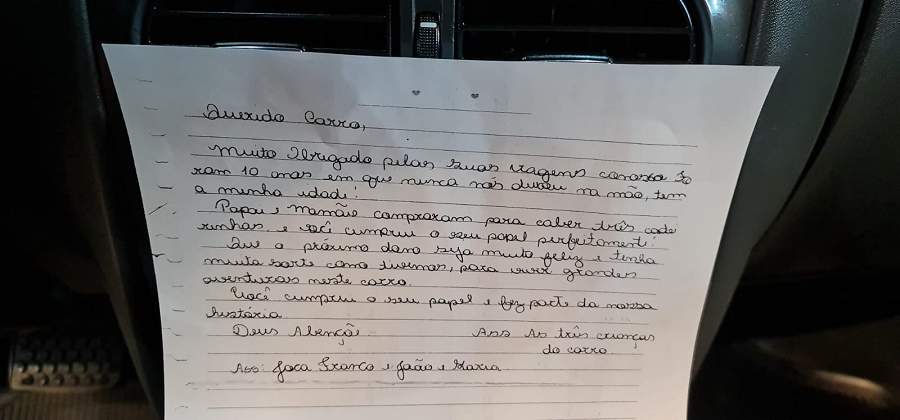 Querido Carro,
Muito Obrigado pelas suas viagens conosco Fo
ram 10 anos em que nunca nos deixou na mão, tem
a minha idade!
Papai e mamãe compraram para caber três cadei
rinhas, e você cumpriu o seu papel perfeitamente!
Que o próximo dono seja muito feliz e tenha
muita sorte como tivemos, para viver grandes
aventuras neste carro.
Você cumpriu o seu papel e fez parte da nossa
história.
Deus Abençõe
Ass As três crianças
do carro
Ass: Joca Franco e João e Maria